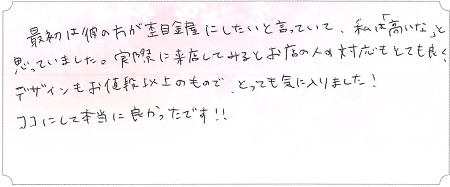 最初は彼の方が杢目金屋にしたいと言っていて、私は「高いな」と
思っていました。実際に来店してみるとお店の人の対応もとても良く、
デザインもお値段以上のもので、とっても気に入りました！
ココにして本当に良かったです！！